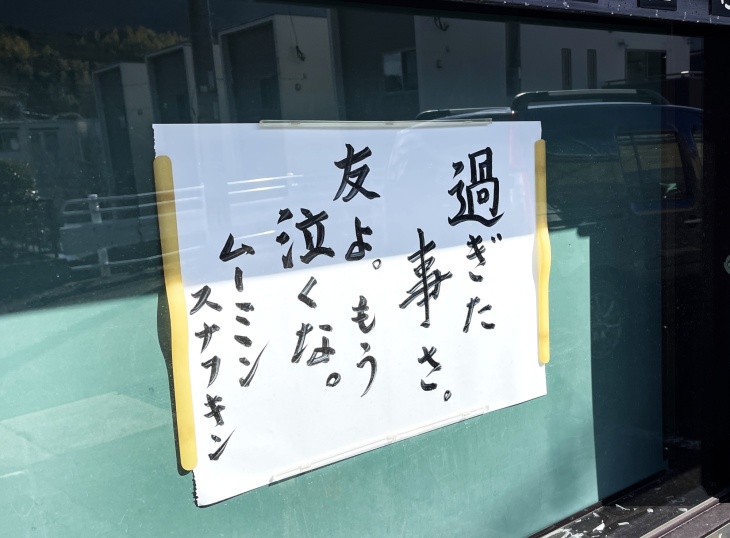 過ぎた
事さ。
友よ。もう
泣くな。
ムーミン
スナフキン